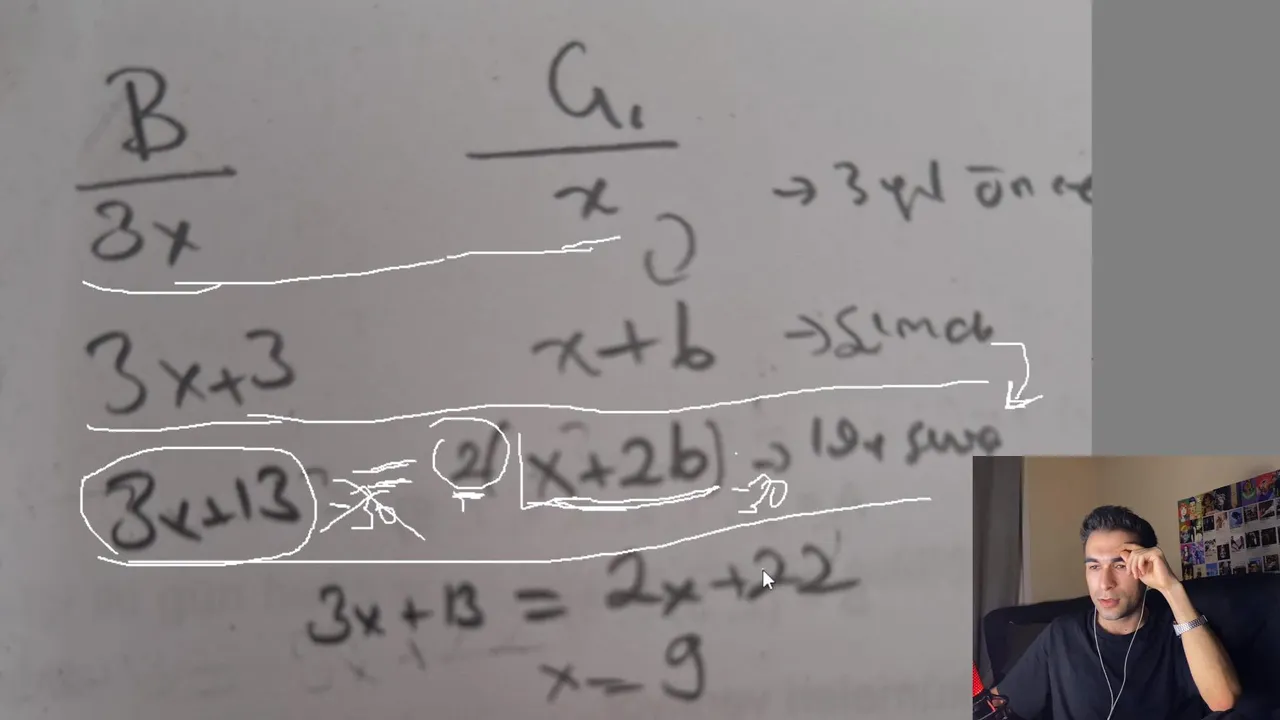 B G₁
3x x → 3 yıl önce
3x+3 x+b → Şimdi
3x+13 = 2(x+2b) → 10y sonra
-30
3x+13 = 2x+22
x=9